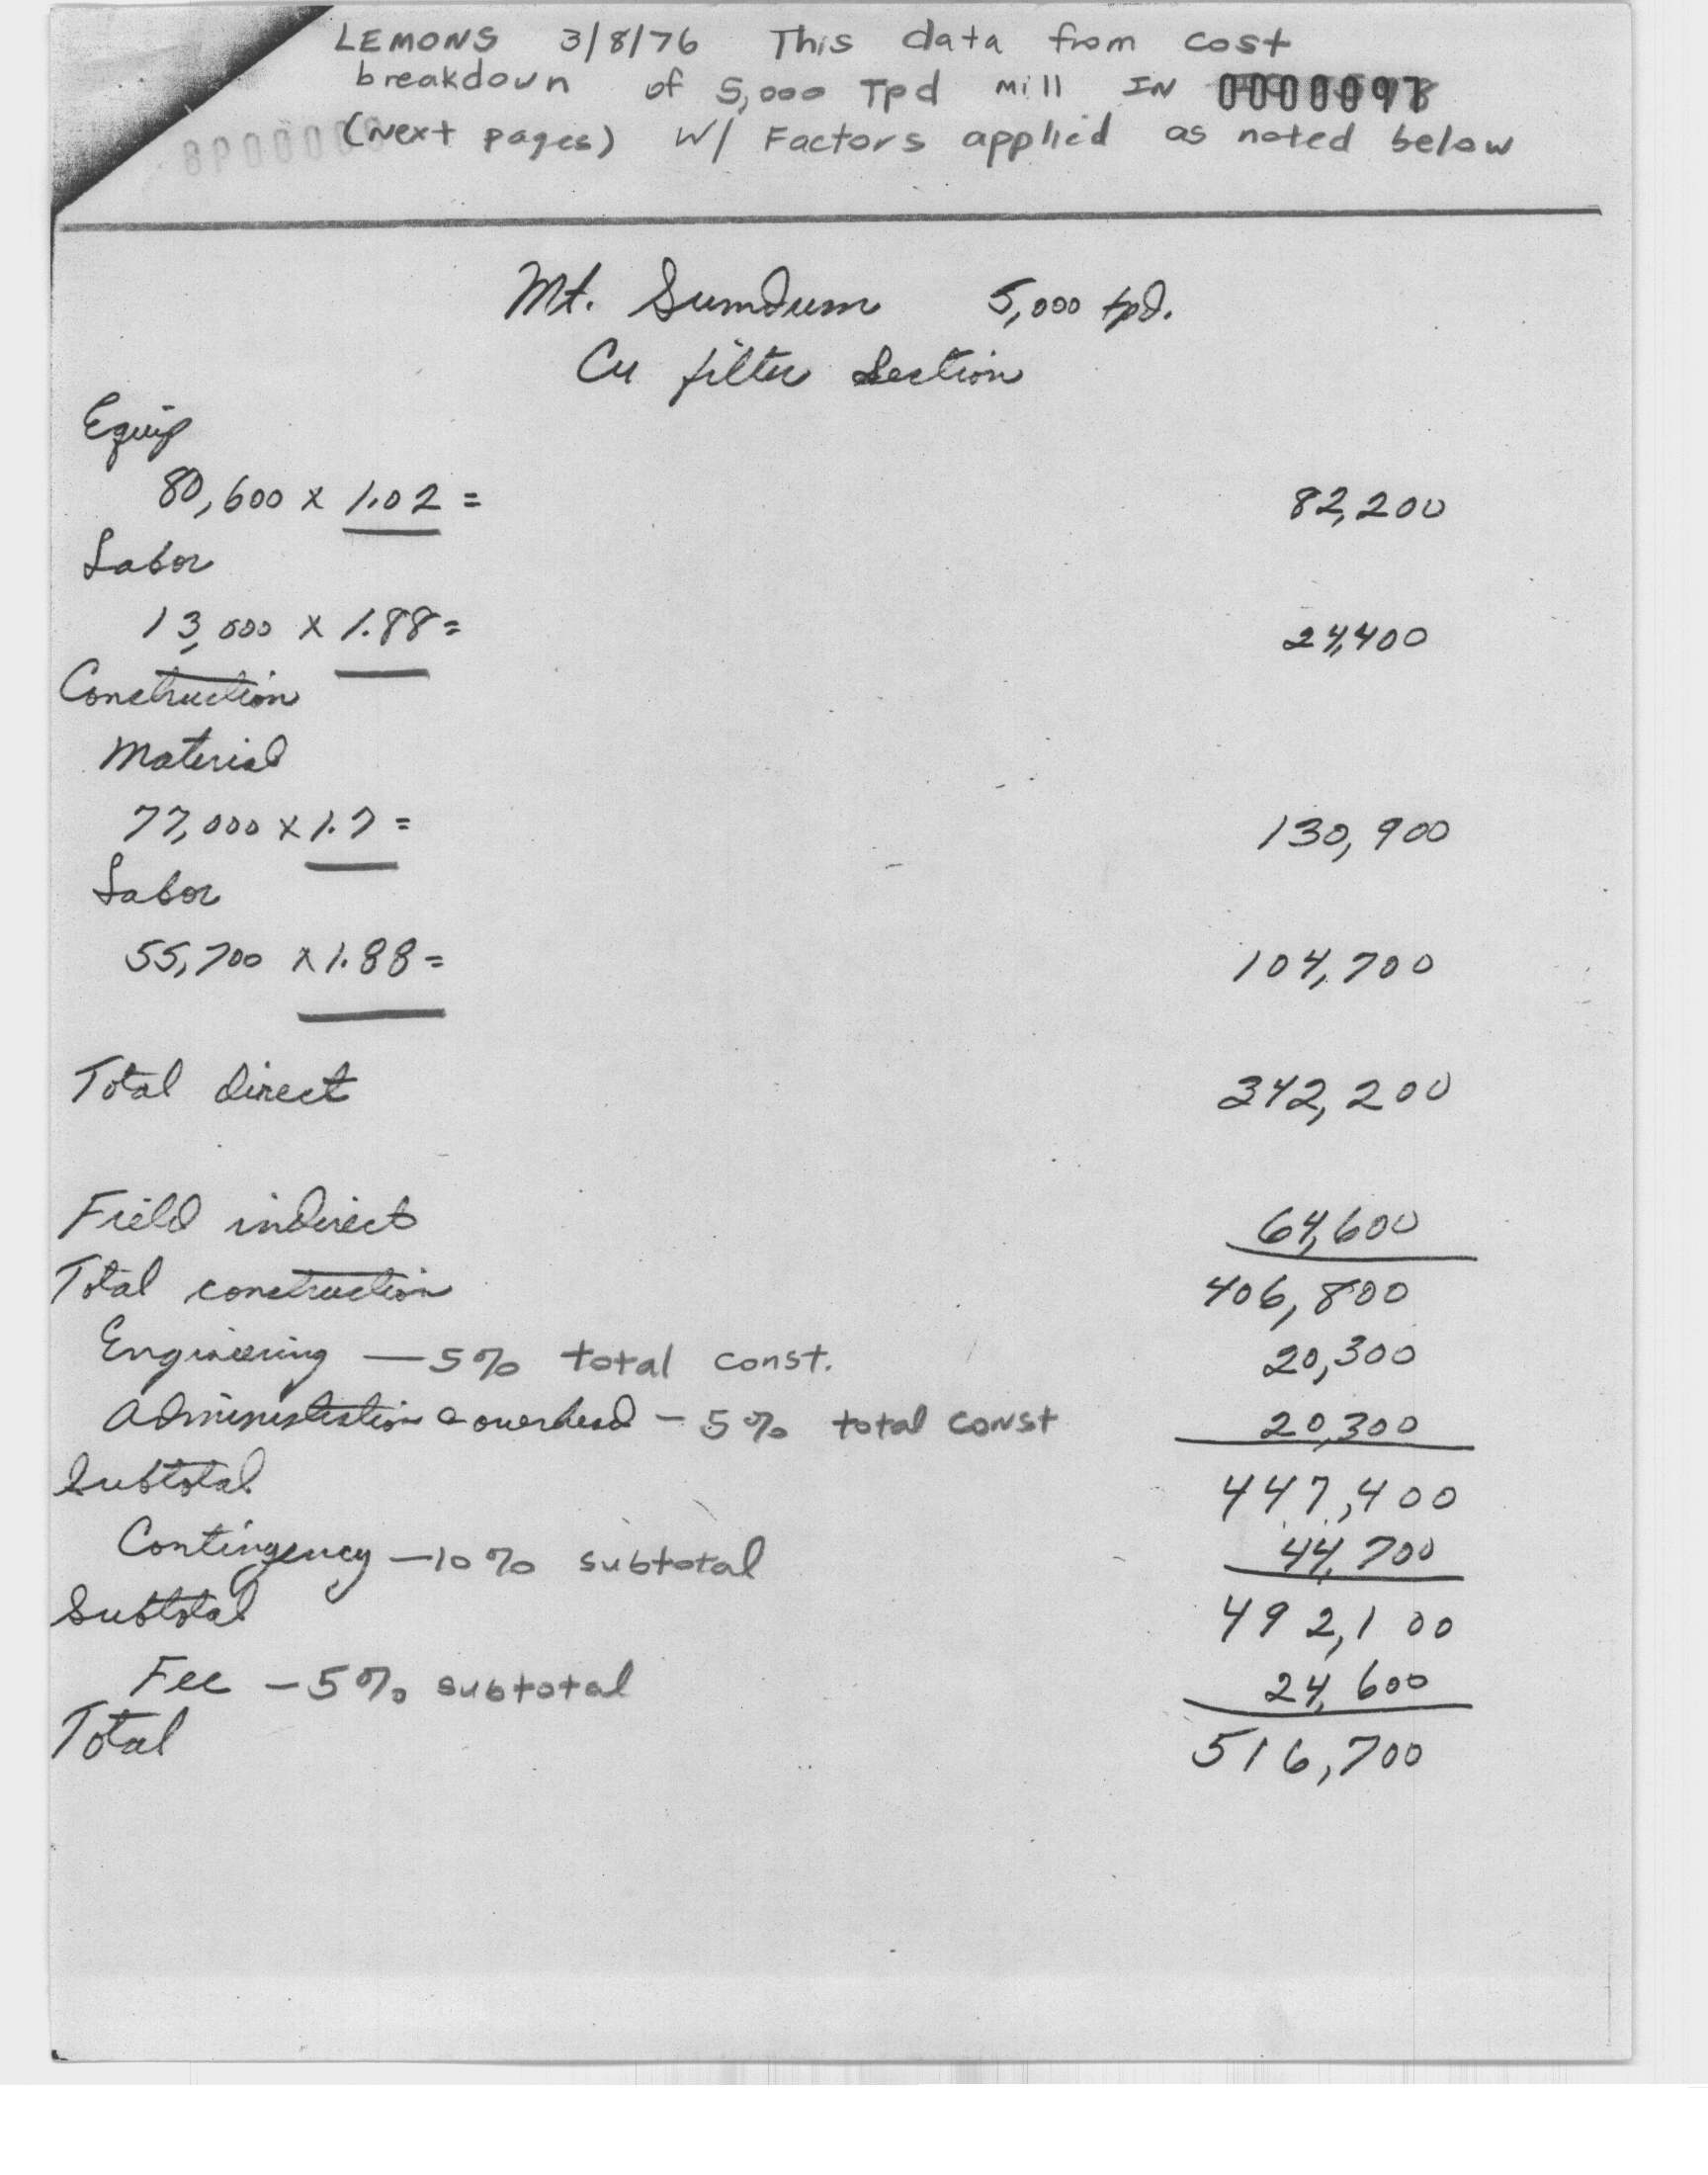 LEMONS 3/8/76 This data from cost
breakdown of 5,000 Tpd mill IN
(Next pages) W/ Factors applied as noted below
Mt. Sumdum 5,000 tpd.
Cu filter Section
Equip
80,600 x 1.02 = 82,200
Labor
13,000 x 1.88 = 24,400
Construction
Material
77,000 x 1.7 = 130,900
Labor
55,700 x 1.88 = 104,700
Total direct 342,200
Field indirect 64,600
Total construction 406,800
Engineering — 5% total const. 20,300
Administration & overhead - 5% total const 20,300
Subtotal 447,400
Contingency — 10% subtotal 44,700
Subtotal 492,100
Fee - 5% subtotal 24,600
Total 516,700